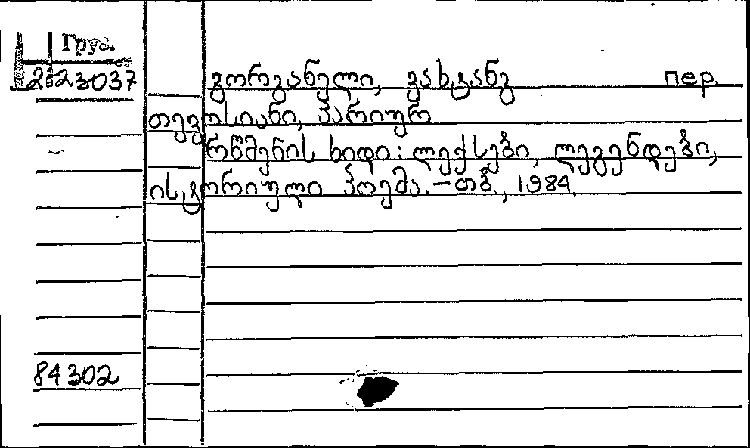 Груз.
2323037
გორგანელი, ვახტანგ пер.
თევოსიანი, პარიურ
რწმენის ხიდი: ლექსები, ლეგენდები,
ისტორიული პოემა. – თბ., 1984.
84302